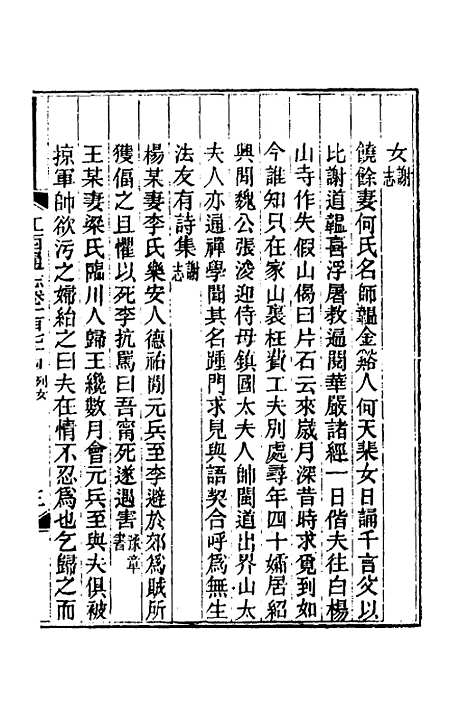 女謝志
饒餘妻何氏名師韞金谿人何天棐女日誦千言父以
比謝道韞喜浮屠教遍閱華嚴諸經一日偕夫往白楊
山寺作失假山偈曰片石云來歲月深昔時求覓到如
今誰知只在家山裏枉費工夫別處尋年四十孀居紹
興間魏公張浚迎侍母鎮國太夫人帥閩道出界山太
夫人亦通禪學聞其名踵門求見與語契合呼為無生
法友有詩集謝志
楊某妻李氏樂安人德祐間元兵至李避於郊為賊所
獲偪之且懼以死李抗罵曰吾甯死遂遇害豫章書
王某妻梁氏臨川人歸王纔數月會元兵至與夫俱被
掠軍帥欲污之婦紿之曰夫在情不忍為也乞歸之而
江西通志卷一百七十 列女 三